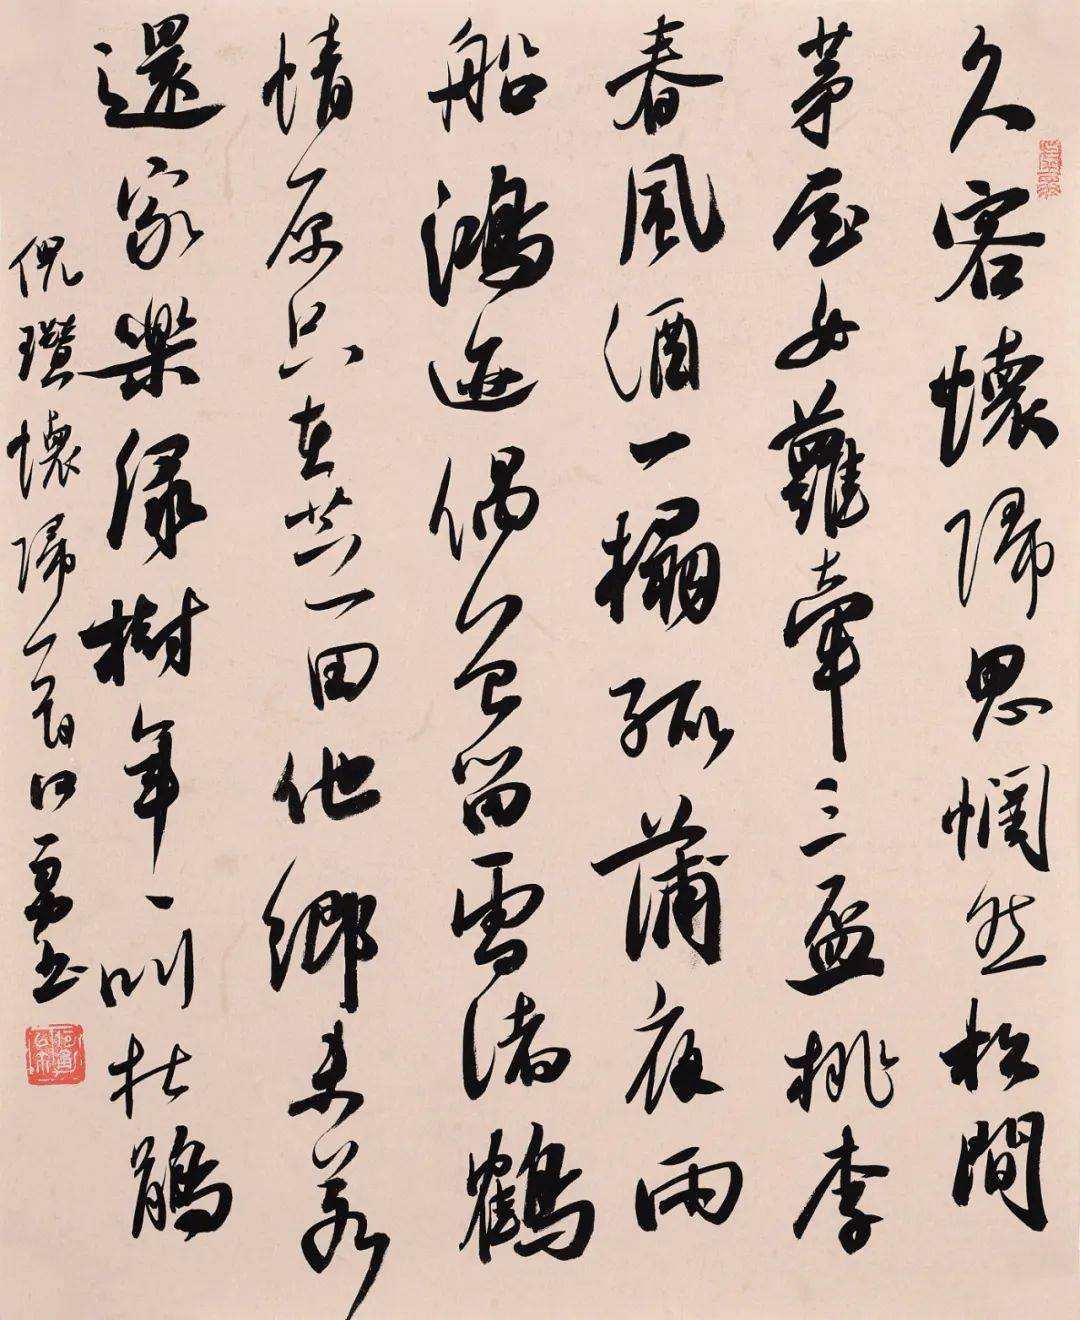 久客懷歸思惘然松間
茅屋女蘿牽三盃桃李
春風酒一榻孤蒲夜雨
船鴻迹偶曾留雪渚鶴
情原只在芝田他鄉未若
還家樂綠樹年丶叫杜鵑
倪瓚懷歸一首 書